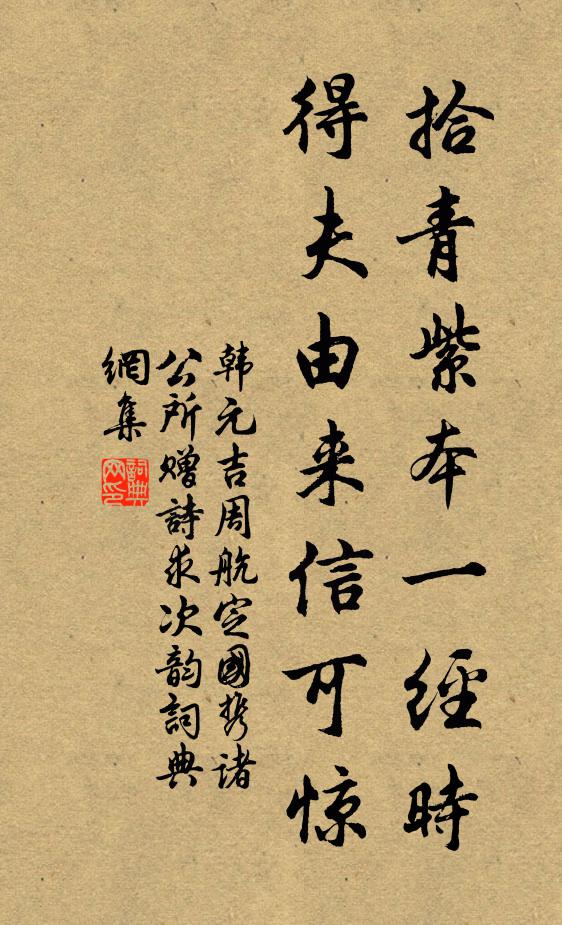 拾青紫本一經時
得夫由来信可惊
韩元吉周航定國携诸
公所赠詩求次韵詞典
網集
詞典
网印